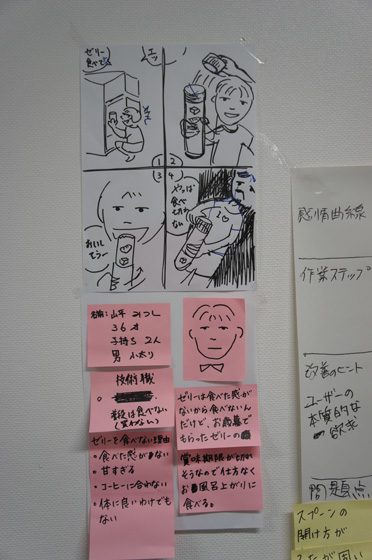 ゼリー
食べて
エッ
1
2
3
4
おいし
そうー
やっぱ
食べ
きれ
ない
名前:山平 みつし
36才
子持ち 2人
男 小太り
技術職
普段は食べない
(買わない)
ゼリーを食べない理由
・食べた感がない
・甘すぎる
・コーヒーに合わない
・体に良いわけでも
ない
ゼリーは食べた感が
ないから食べないん
だけど、お歳暮で
もらったゼリーの
賞味期限が切れ
そうなので仕方なく
お風呂上がりに
食べる。
感情曲線
作業ステップ
改善のヒント
ユーザーの
本質的な
欲求
問題点
スプーンの
開け方が
ふたが固い